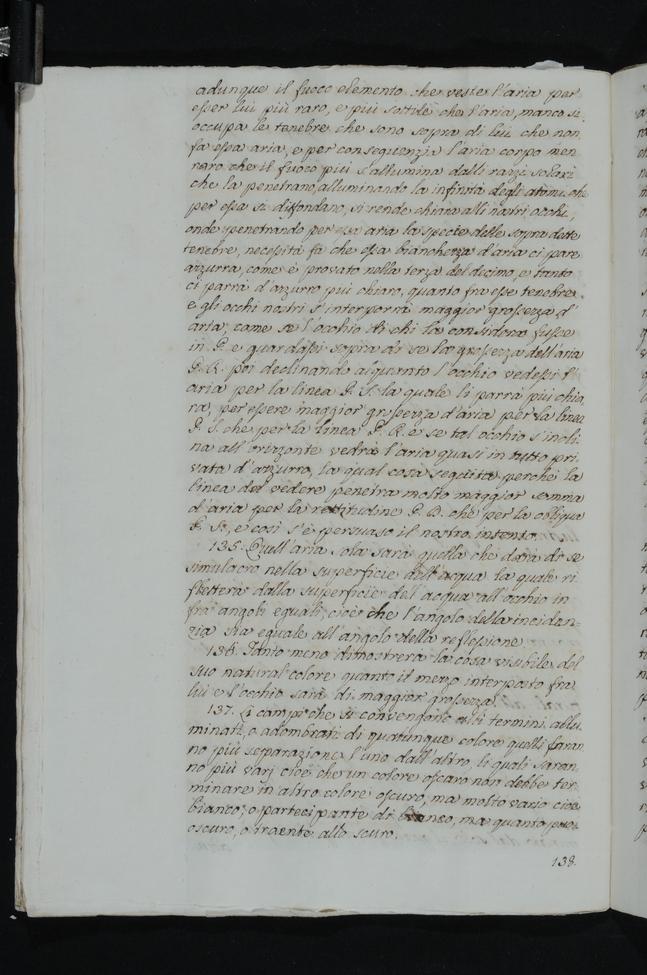 adunque il fuoco elemento che veste l'aria per
esser lui più raro, e più sottile che l'aria, manco ci
occupa le tenebre che sono sopra di lui che non
fa essa aria, e per conseguenzia l'aria corpo men
raro che il fuoco più s'allumina dalli razzi solari
che la penetrano, alluminando la infinità degli atomi che
per essa si diffondano, si rende chiara alli nostri occhi,
onde penetrando per essa aria la specie delle sopra dette
tenebre, necessità fa che essa bianchezza d'aria ci pare
azzurra, come è provato nella terza del decimo, e tanto
ci parrà d'azzurro più chiaro, quanto fra esse tenebre
e gli occhi nostri s'interporrà maggior grossezza d'
aria, come se l'occhio di chi la considera fusse
in P. e guardassi sopra di se la grossezza dell'aria
P. R. poi declinando alquanto l'occhio vedessi l'
aria per la linea P. S. la quale li parrà più chia
ra, per essere maggior grossezza d'aria per la linea
P. S. che per la linea P. R. e se tal occhio s'incli
na all'orizzonte vedrà l'aria quasi in tutto pri
vata d'azzurro, la qual cosa seguita perchè la
linea del vedere penetra molto maggior somma
d'aria per la rettitudine P. D. che per la obliqua
P. S., e così s'è persuaso il nostro intento.
135. Quell'aria sola sarà quella che darà di se
simulacro nella superficie dell'acqua la quale ri
fletterà dalla superficie del acqua all'occhio in
fra angoli eguali, cioè che l'angolo della inciden=
zia sia eguale all'angolo della reflessione.
136. Tanto meno dimostrerà la cosa visibile del
suo natural colore quanto il mezzo interposto fra
lui e l'occhio sarà di maggior grossezza.
137. Li campi che si convengano alli termini allu
minati, o adombrati di qualunque colore quelli faran
no più separazione l'uno dall'altro, li quali saran
no più vari cioè che un colore oscuro non debbe ter
minare in altro colore oscuro, ma molto vario cioè
bianco, o partecipante di bianco, ma quanto puoi
oscuro, o traente allo scuro.
138.